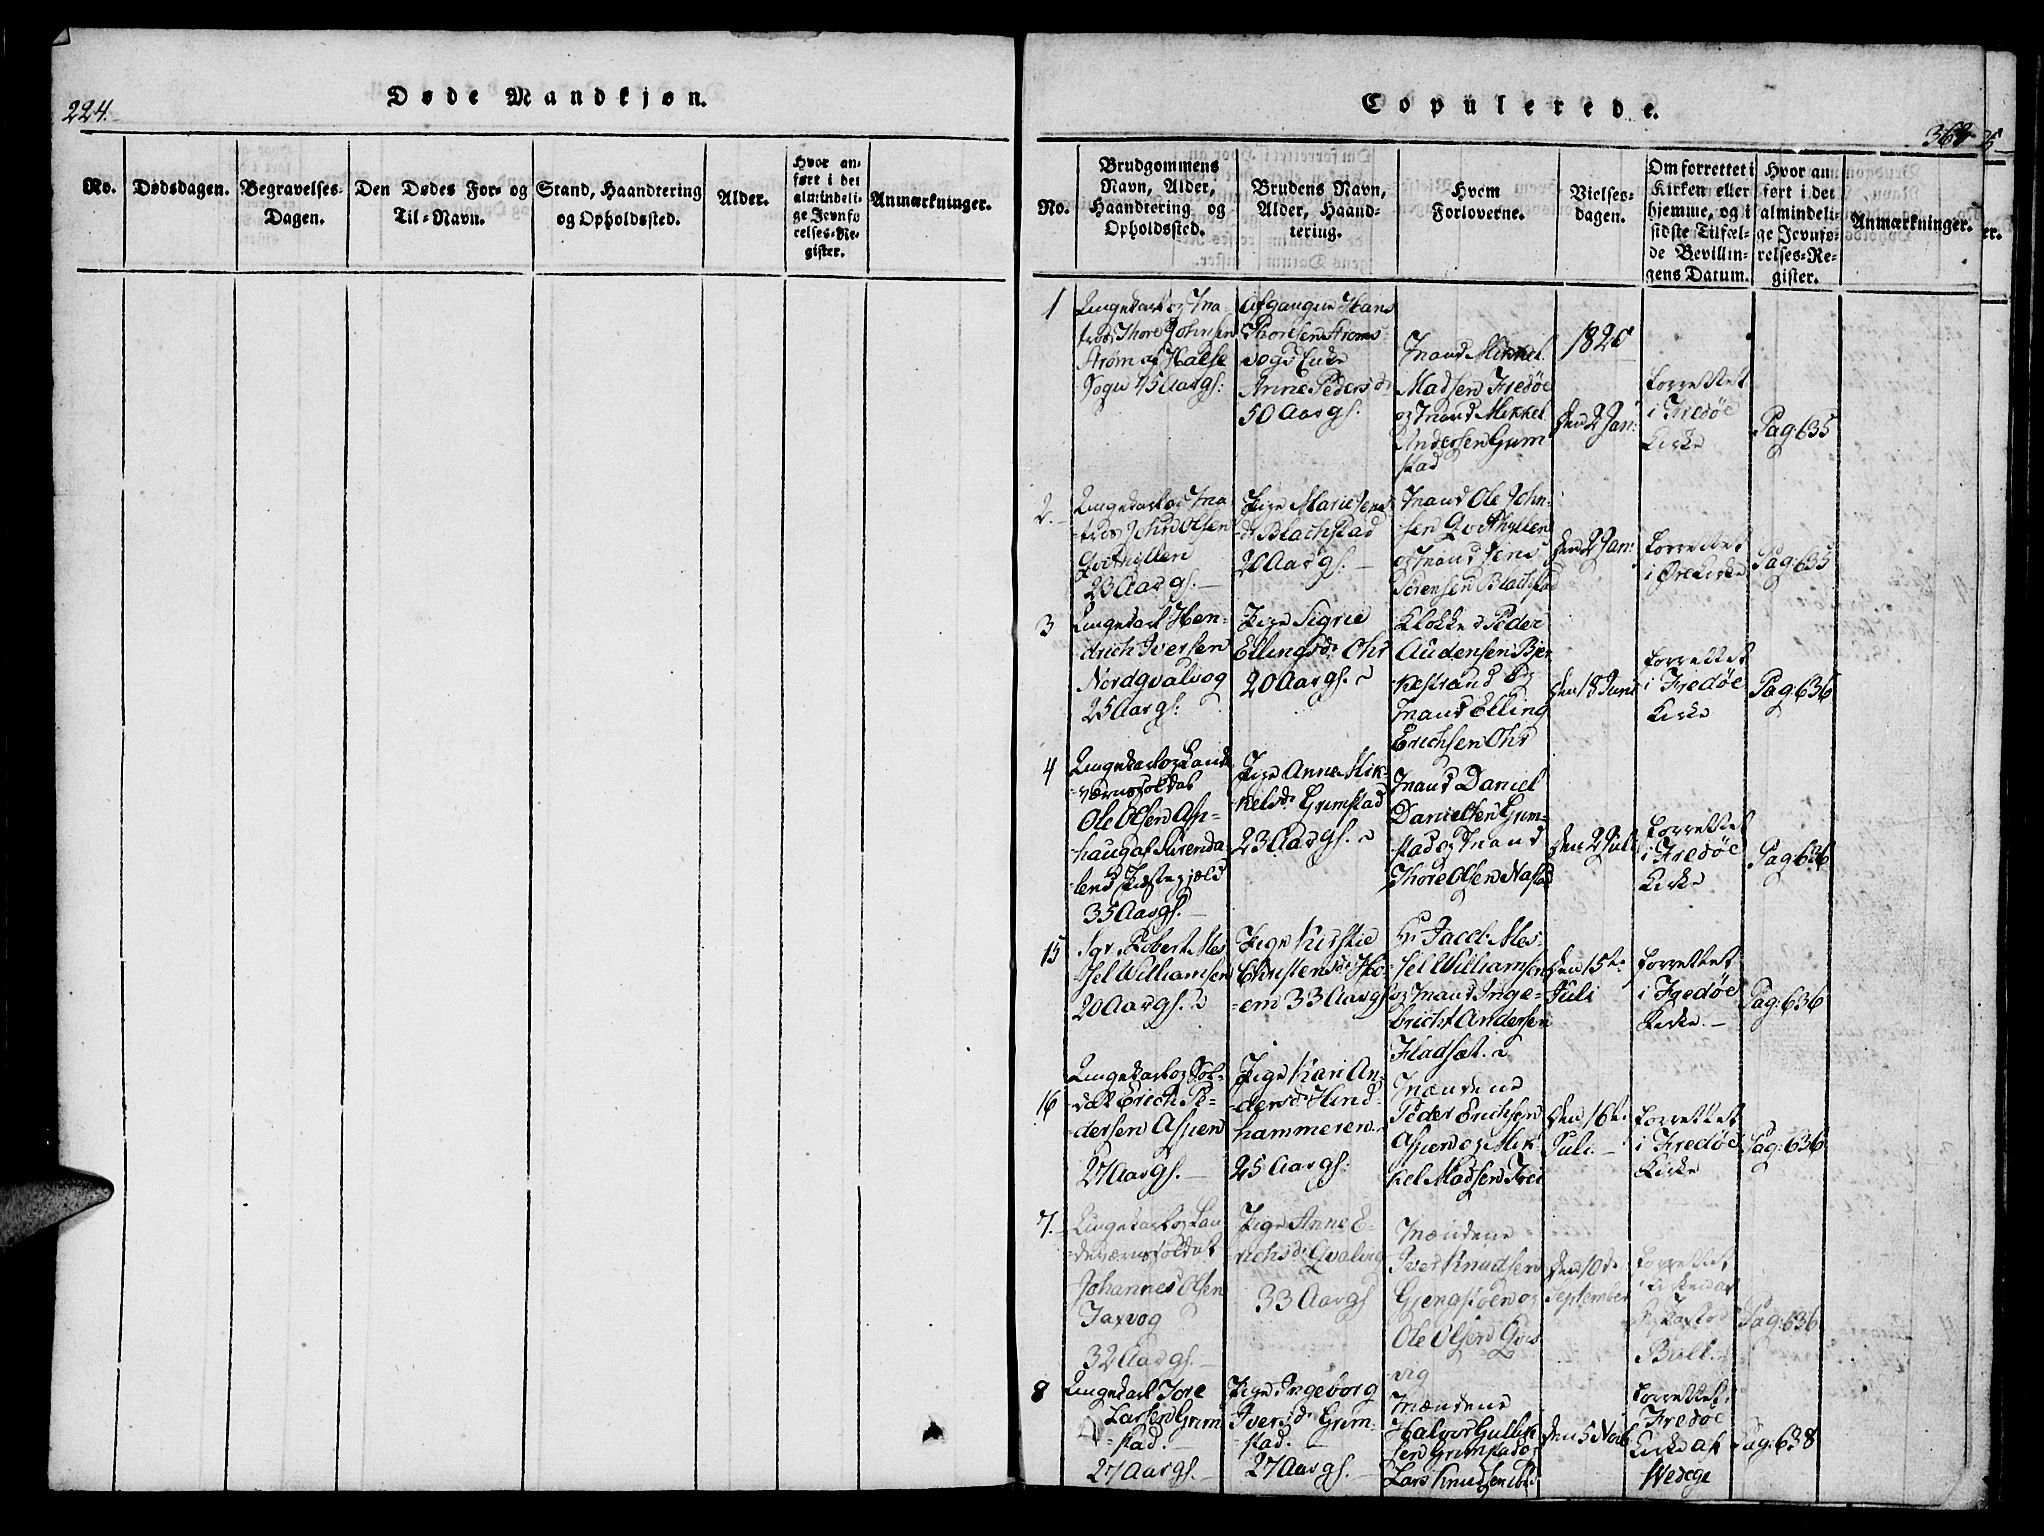 224.
Døde Mandkjøn.
No.
Dødsdagen.
Begravelses-
Dagen.
Den Dødes For- og
Til-Navn.
Stand, Haandtering
og Opholdssted.
Alder.
Hvor an-
ført i det
almindeli-
ge Jevnfø
relses-Re-
gister.
Anmærkninger.
Copulerede.
363
No.
Brudgommens
Navn, Alder,
Haandtering og
Opholdssted.
Brudens Navn,
Alder, Haand-
tering.
Hvem
Forloverne.
Vielses-
dagen.
Om forrettet i
Kirken eller
hjemme, og i
sidste Tilfæl-
de Bevillin-
gens Datum.
Hvor an
ført i det
almindeli-
ge Jevnfø-
relses-Re-
gister.
Anmærkninger.
er.
1
Ungekarl og Ma-
tros Thore Johnsen
Strøm af Halse
Sogn 45 Aar gl:
Afgangne Hans
Thoresen Strøms
Enke
Anne Pedersd:
50 Aar gl:
Mand Mikkel
Madsen Fredøe
og Mand Mikkel
Andersen Grim
stad
1820
den 2 Jan:
forrettet
i Fredøe
Kirke
Pag: 635
2.
Ungekarl og Ma
-tros John Olsen
Qvithyllen
23 Aar gl.
Pige Marie Jens
d: Blachstad
20 Aar gl.
Mand Ole John-
sen Qvithyllen
og Mand Jens
Sørensen Blachstad
den 2 Jan:
forrettet
i Øre Kirke
Pag: 635
3
Ungekarl Hen-
drich Iversen
Nordqvalvog
25 Aar gl:
Pige Sigrie
Ellingsd: Ohr
20 Aar gl.
Klokker Peder
Audensen Bjer
kestrand og
Mand Elling
Erichsen Ohr
den 18 Juni
forrettet
i Fredøe
Kirke
Pag: 636
4
Ungekarl og Lande
-værnssoldat
Ole Olsen Asp-
haug af Surenda
lens Præstegjæld
35 Aar gl.
Pige Anne Mik-
kelsd: Grimstad
23 Aar gl.
Mand Daniel
Danielsen Grim-
stad og Mand
Thore Olsen Nastad
den 2 Juli
forrettet
i Fredøe
Kirke
Pag: 636
15
Sgr. Robert Mes
-sel Williamsen
20 Aar gl.
Pige Kirstie
Christensd: Ho-
-em 33 Aar gl
Hr Jacob Mes-
sel Williamsen
og Mand Inge-
bricht Andersen
Fladset.
den 15te
Juli
forrettet
i Fredøe
Kirke.
Pag: 636
16
Ungekarl og Sol-
dat Erich Pe-
-dersen Aspen
27 Aar gl.
Pige Kari An-
dersd: Hend-
hammeren
25 Aar gl:
Mændene
Peder Erichsen
Aspen og Mik
kel Madsen Fred
den 16te
Juli.
forrettet
i Fredøe
Kirke
Pag: 636
7.
Ungekarl og Lan
-deværnssoldat
Johannes Olsen
Taxvog
32 Aar gl.
Pige Anne E-
richsd: Qvalvig
33 Aar gl
Mændene
Iver Knudsen
Gjengstøen og
Ole Olsen Qvis
vig
den 10de
September
forrettet
i Kirken af
Hr Pastor
Bull.
Pag: 636
8
Ungekarl Tore
Larsen Grim
-stad.
27 Aar gl.
Pige Ingeborg
Iversd: Grim-
stad.
27 Aar gl.
Mændene
Halvor Gullik
sen Grimstad og
Lars Knudsen
den 5 Novb
forrettet i
Fredøe
Kirke af
Wedege
Pag: 638